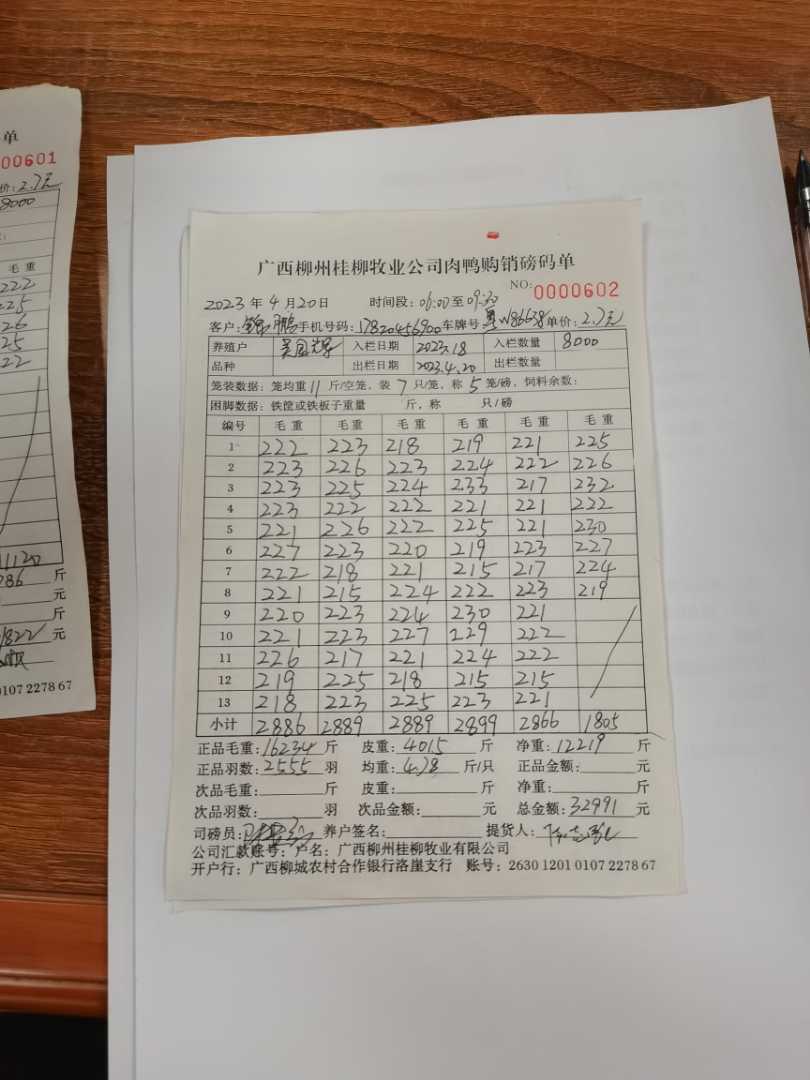 单
00601
价: 2.7元
8000
毛 重
222
225
226
225
222
11120
286 斤
元
斤
1822 元
0107 2278 67
广西柳州桂柳牧业公司肉鸭购销磅码单
NO: 0000602
2023 年 4 月 20 日 时间段: 06:00 至 09:30
客户: 锦鹏 手机号码: 17820456900 车牌号 粤W86638 单价: 2.7元
养殖户 吴国辉 入栏日期 2023.1.8 入栏数量 8000
品种 出栏日期 2023.4.20 出栏数量
笼装数据: 笼均重 11 斤/空笼, 装 7 只/笼, 称 5 笼/磅, 饲料余数:
困脚数据: 铁筐或铁板子重量 斤, 称 只/磅
编号 毛 重 毛 重 毛 重 毛 重 毛 重 毛 重
1 222 223 218 219 221 225
2 223 226 223 224 222 226
3 223 225 224 233 217 232
4 223 222 222 221 221 222
5 221 226 222 225 221 230
6 227 223 220 219 223 227
7 222 218 221 215 217 224
8 221 215 224 222 223 219
9 220 223 224 230 221
10 221 223 227 229 222
11 226 217 221 224 222
12 219 225 218 215 215
13 218 223 225 223 221
小计 2886 2889 2889 2899 2866 1805
正品毛重: 16234 斤 皮重: 4015 斤 净重: 12219 斤
正品羽数: 2555 羽 均重: 4.78 斤/只 正品金额: 元
次品毛重: 斤 皮重: 斤 净重: 斤
次品羽数: 羽 次品金额: 元 总金额: 32991 元
司磅员: 养户签名: 提货人:
公司汇款账号: 户名: 广西柳州桂柳牧业有限公司
开户行: 广西柳城农村合作银行洛崖支行 账号: 2630 1201 0107 2278 67